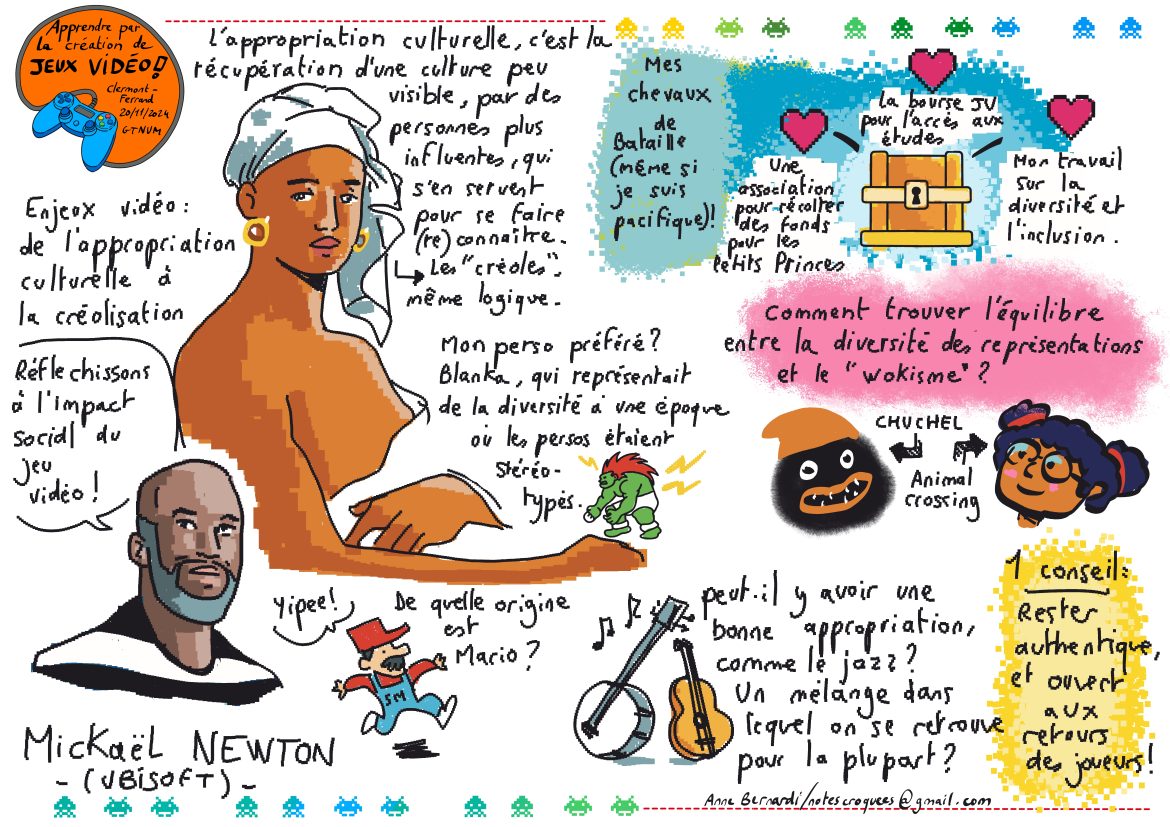 Apprendre par
la création de
JEUX VIDÉO!
Clermont-
Ferrand
20/11/2024
GTNUM
L'appropriation culturelle, c'est la
récupération d'une culture peu
visible, par des
personnes plus
influentes, qui
s'en servent
pour se faire
(re)connaître.
Les "créoles",
même logique.
Enjeux vidéo:
de l'appropriation
culturelle à
la créolisation
Réflechissons
à l'impact
social du
jeu
vidéo!
Mickaël NEWTON
-(UBISOFT)-
Mon perso préféré?
Blanka, qui représentait
de la diversité à une époque
où les persos étaient
stéréo-
typés.
Yipee!
De quelle origine
est
Mario?
SM
Mes
chevaux
de
Bataille
(même si
je suis
pacifique)!
Une
association
pour récolter
des fonds
pour les
petits Princes
La bourse JV
pour l'accès aux
études
Mon travail
sur la
diversité et
l'inclusion.
Comment trouver l'équilibre
entre la diversité des représentations
et le "wokisme"?
CHUCHEL
Animal
crossing
peut-il y avoir une
bonne appropriation,
comme le jazz?
Un mélange dans
lequel on se retrouve
pour la plupart?
1 conseil:
Rester
authentique,
et ouvert
aux
retours
des joueurs!
Anne Bernardi/notescroquees@gmail.com